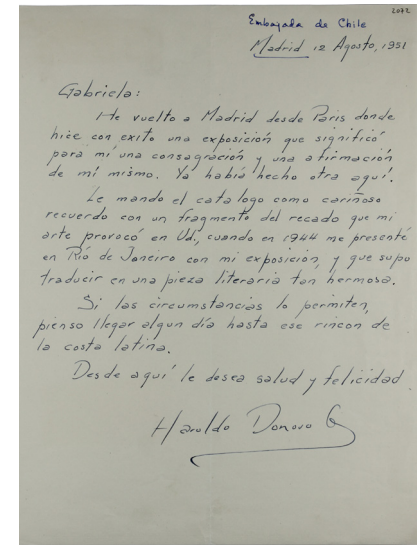 2072
Embajada de Chile
Madrid 12 Agosto, 1951
Gabriela:
He vuelto a Madrid desde Paris donde
hice con exito una exposición que significó
para mí una consagración y una afirmación
de mí mismo. Ya había hecho otra aquí.
Le mando el catalogo como cariñoso
recuerdo con un fragmento del recado que mi
arte provocó en Ud., cuando en 1944 me presenté
en Río de Janeiro con mi exposición, y que supo
traducir en una pieza literaria tan hermosa.
Si las circumstancias lo permiten,
pienso llegar algun día hasta ese rincon de
la costa latina.
Desde aquí le desea salud y felicidad
Haroldo Donoso G